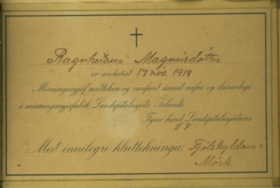 Ragnheiður Magnúsdóttir
er andaðist 19 nóv. 1918
Minningargjöf meðtekin og innfærð ásamt nafni og dánardegi
í minningargjafabók Landspítalasjóðs Íslands.
Fyrir hönd Landspítalasjóðsins
Með innilegri hluttekningu. Fjölskyldan
Mörk